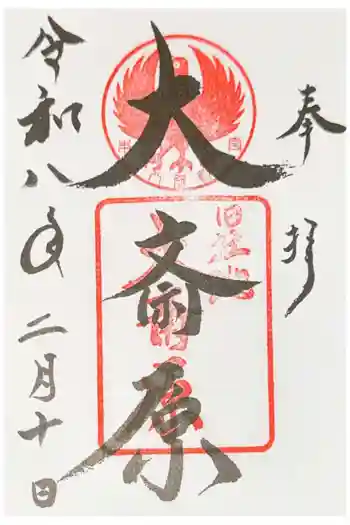 奉拝
大斎原
旧社地
令和八年二月十日